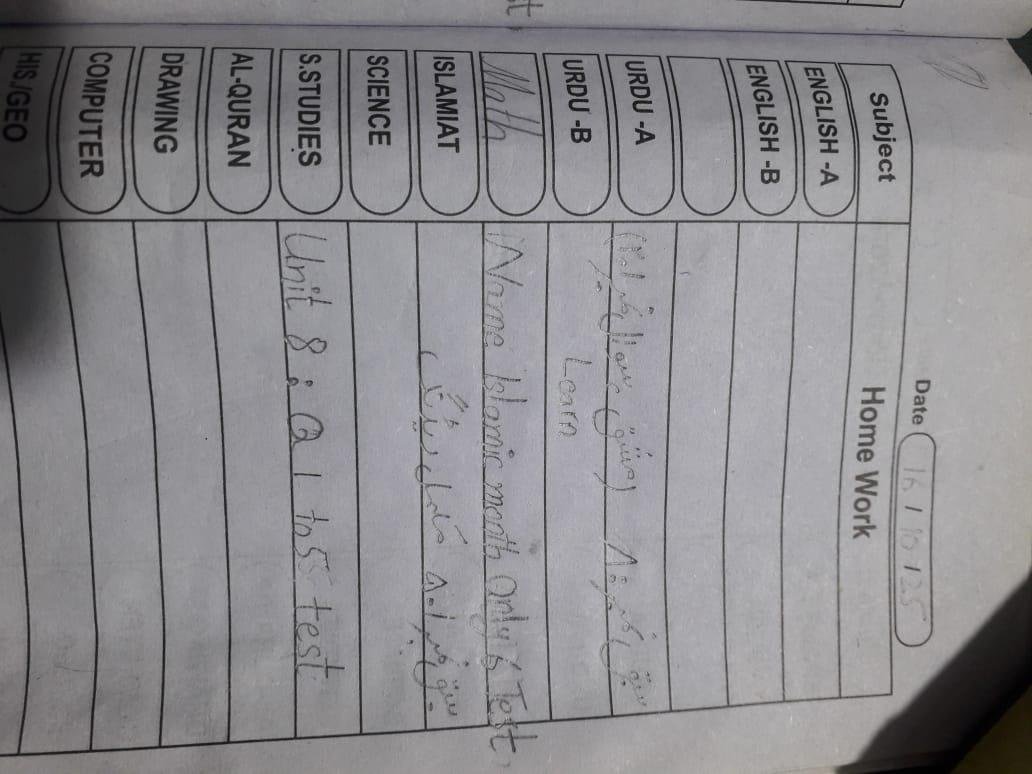 Date 16/10/25
Subject Home Work
ENGLISH -A
ENGLISH -B
URDU -A سبق نمبر 8 (مشق سوال نمبر
URDU -B Learn
Math Name Islamic month Only Test
ISLAMIAT سبق نمبر مکمل
SCIENCE
S.STUDIES Unit 8 : Q 1 to 5 test
AL-QURAN
DRAWING
COMPUTER
HIS/GEO